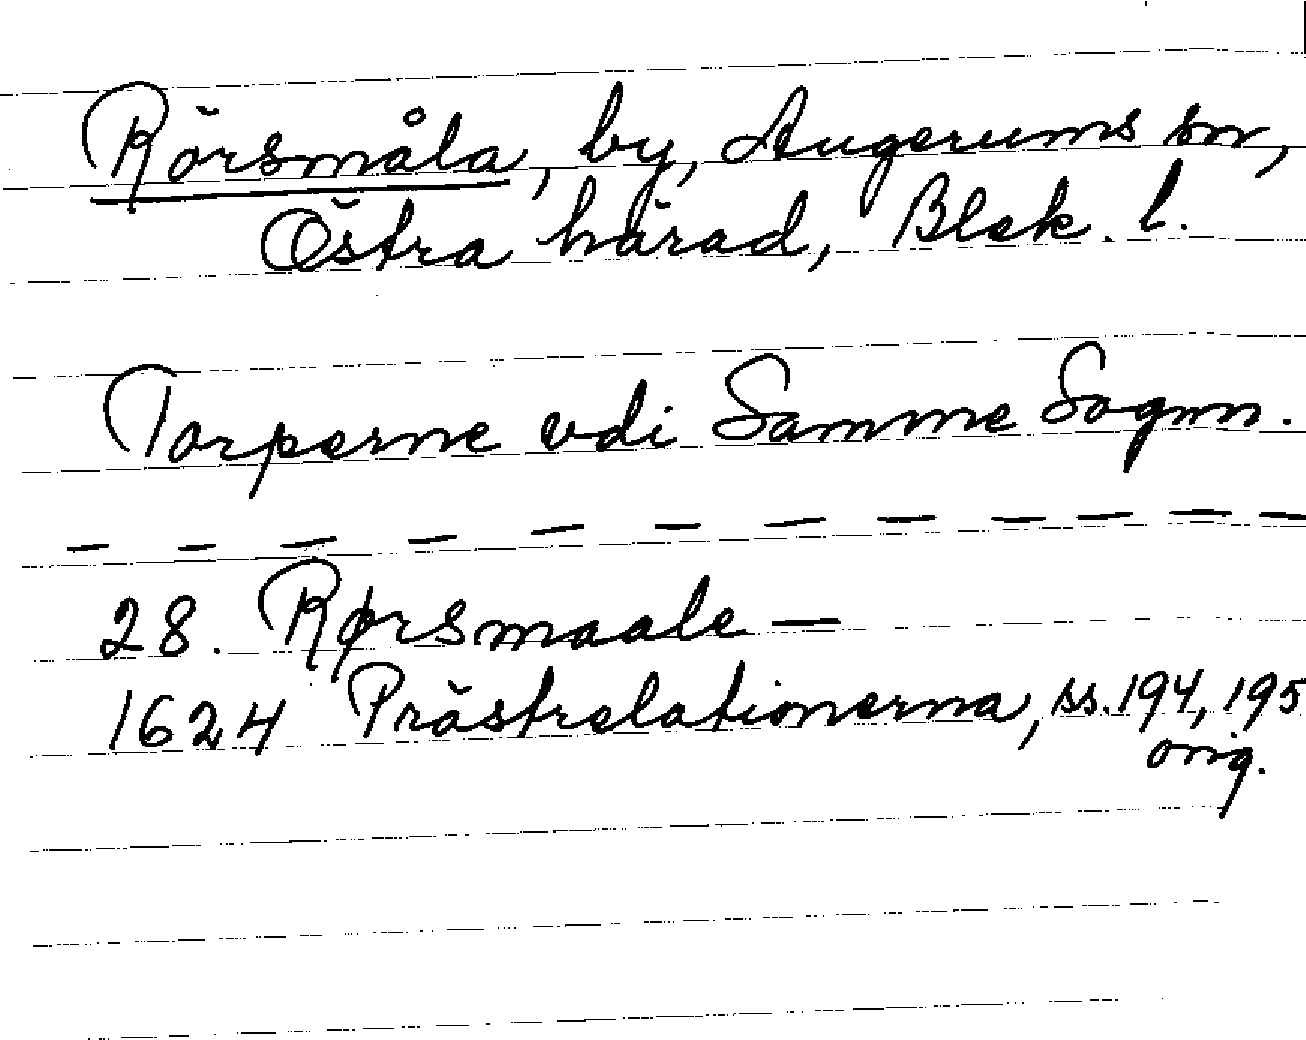 Rörsmåla, by, Augerums sn,
Östra härad, Blek. l.
Torperne vdi Samme Sognn.
— — — — — — — — — — — —
28. Rørsmaale —
1624 Prästrelationerna, ss. 194, 195
orig.